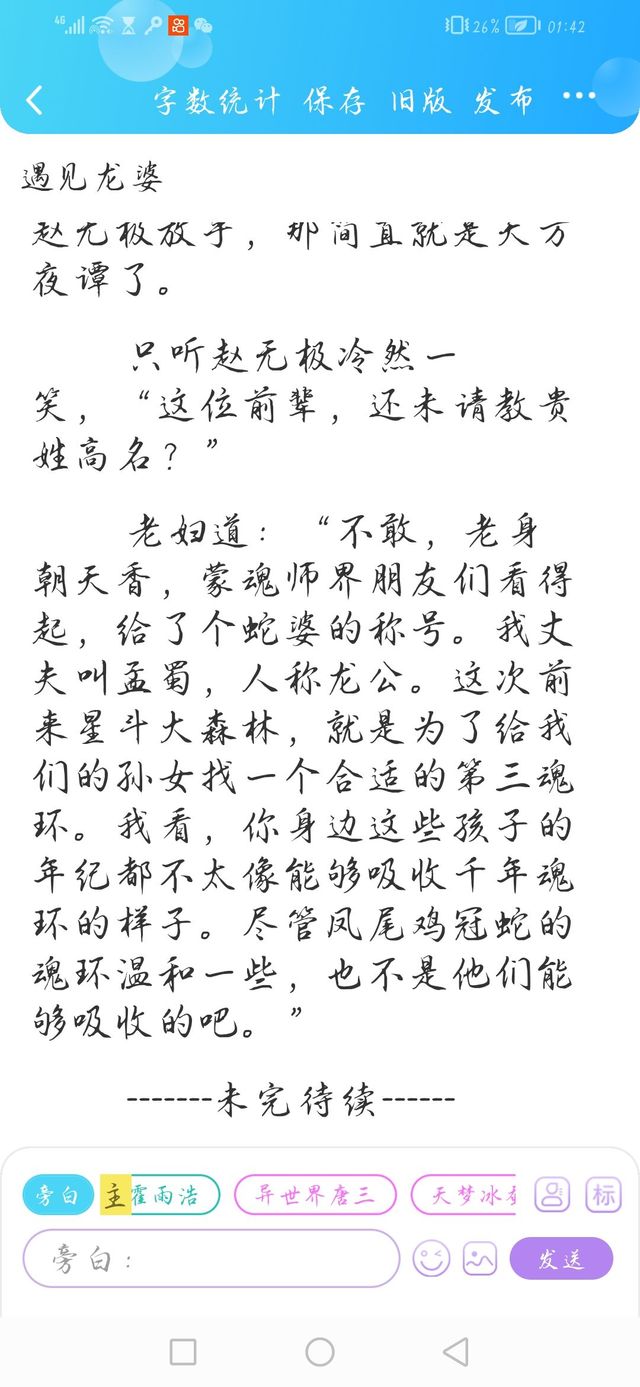 4G 26% 01:42
字数统计 保存 旧版 发布 ...
遇见龙婆
赵无极放手，那简直就是天方
夜谭了。
只听赵无极冷然一
笑，“这位前辈，还未请教贵
姓高名？”
老妇道：“不敢，老身
朝天香，蒙魂师界朋友们看得
起，给了个蛇婆的称号。我丈
夫叫孟蜀，人称龙公。这次前
来星斗大森林，就是为了给我
们的孙女找一个合适的第三魂
环。我看，你身边这些孩子的
年纪都不太像能够吸收千年魂
环的样子。尽管凤尾鸡冠蛇的
魂环温和一些，也不是他们能
够吸收的吧。”
-------未完待续------
旁白 主 霍雨浩 异世界唐三 天梦冰 标
旁白： 发送